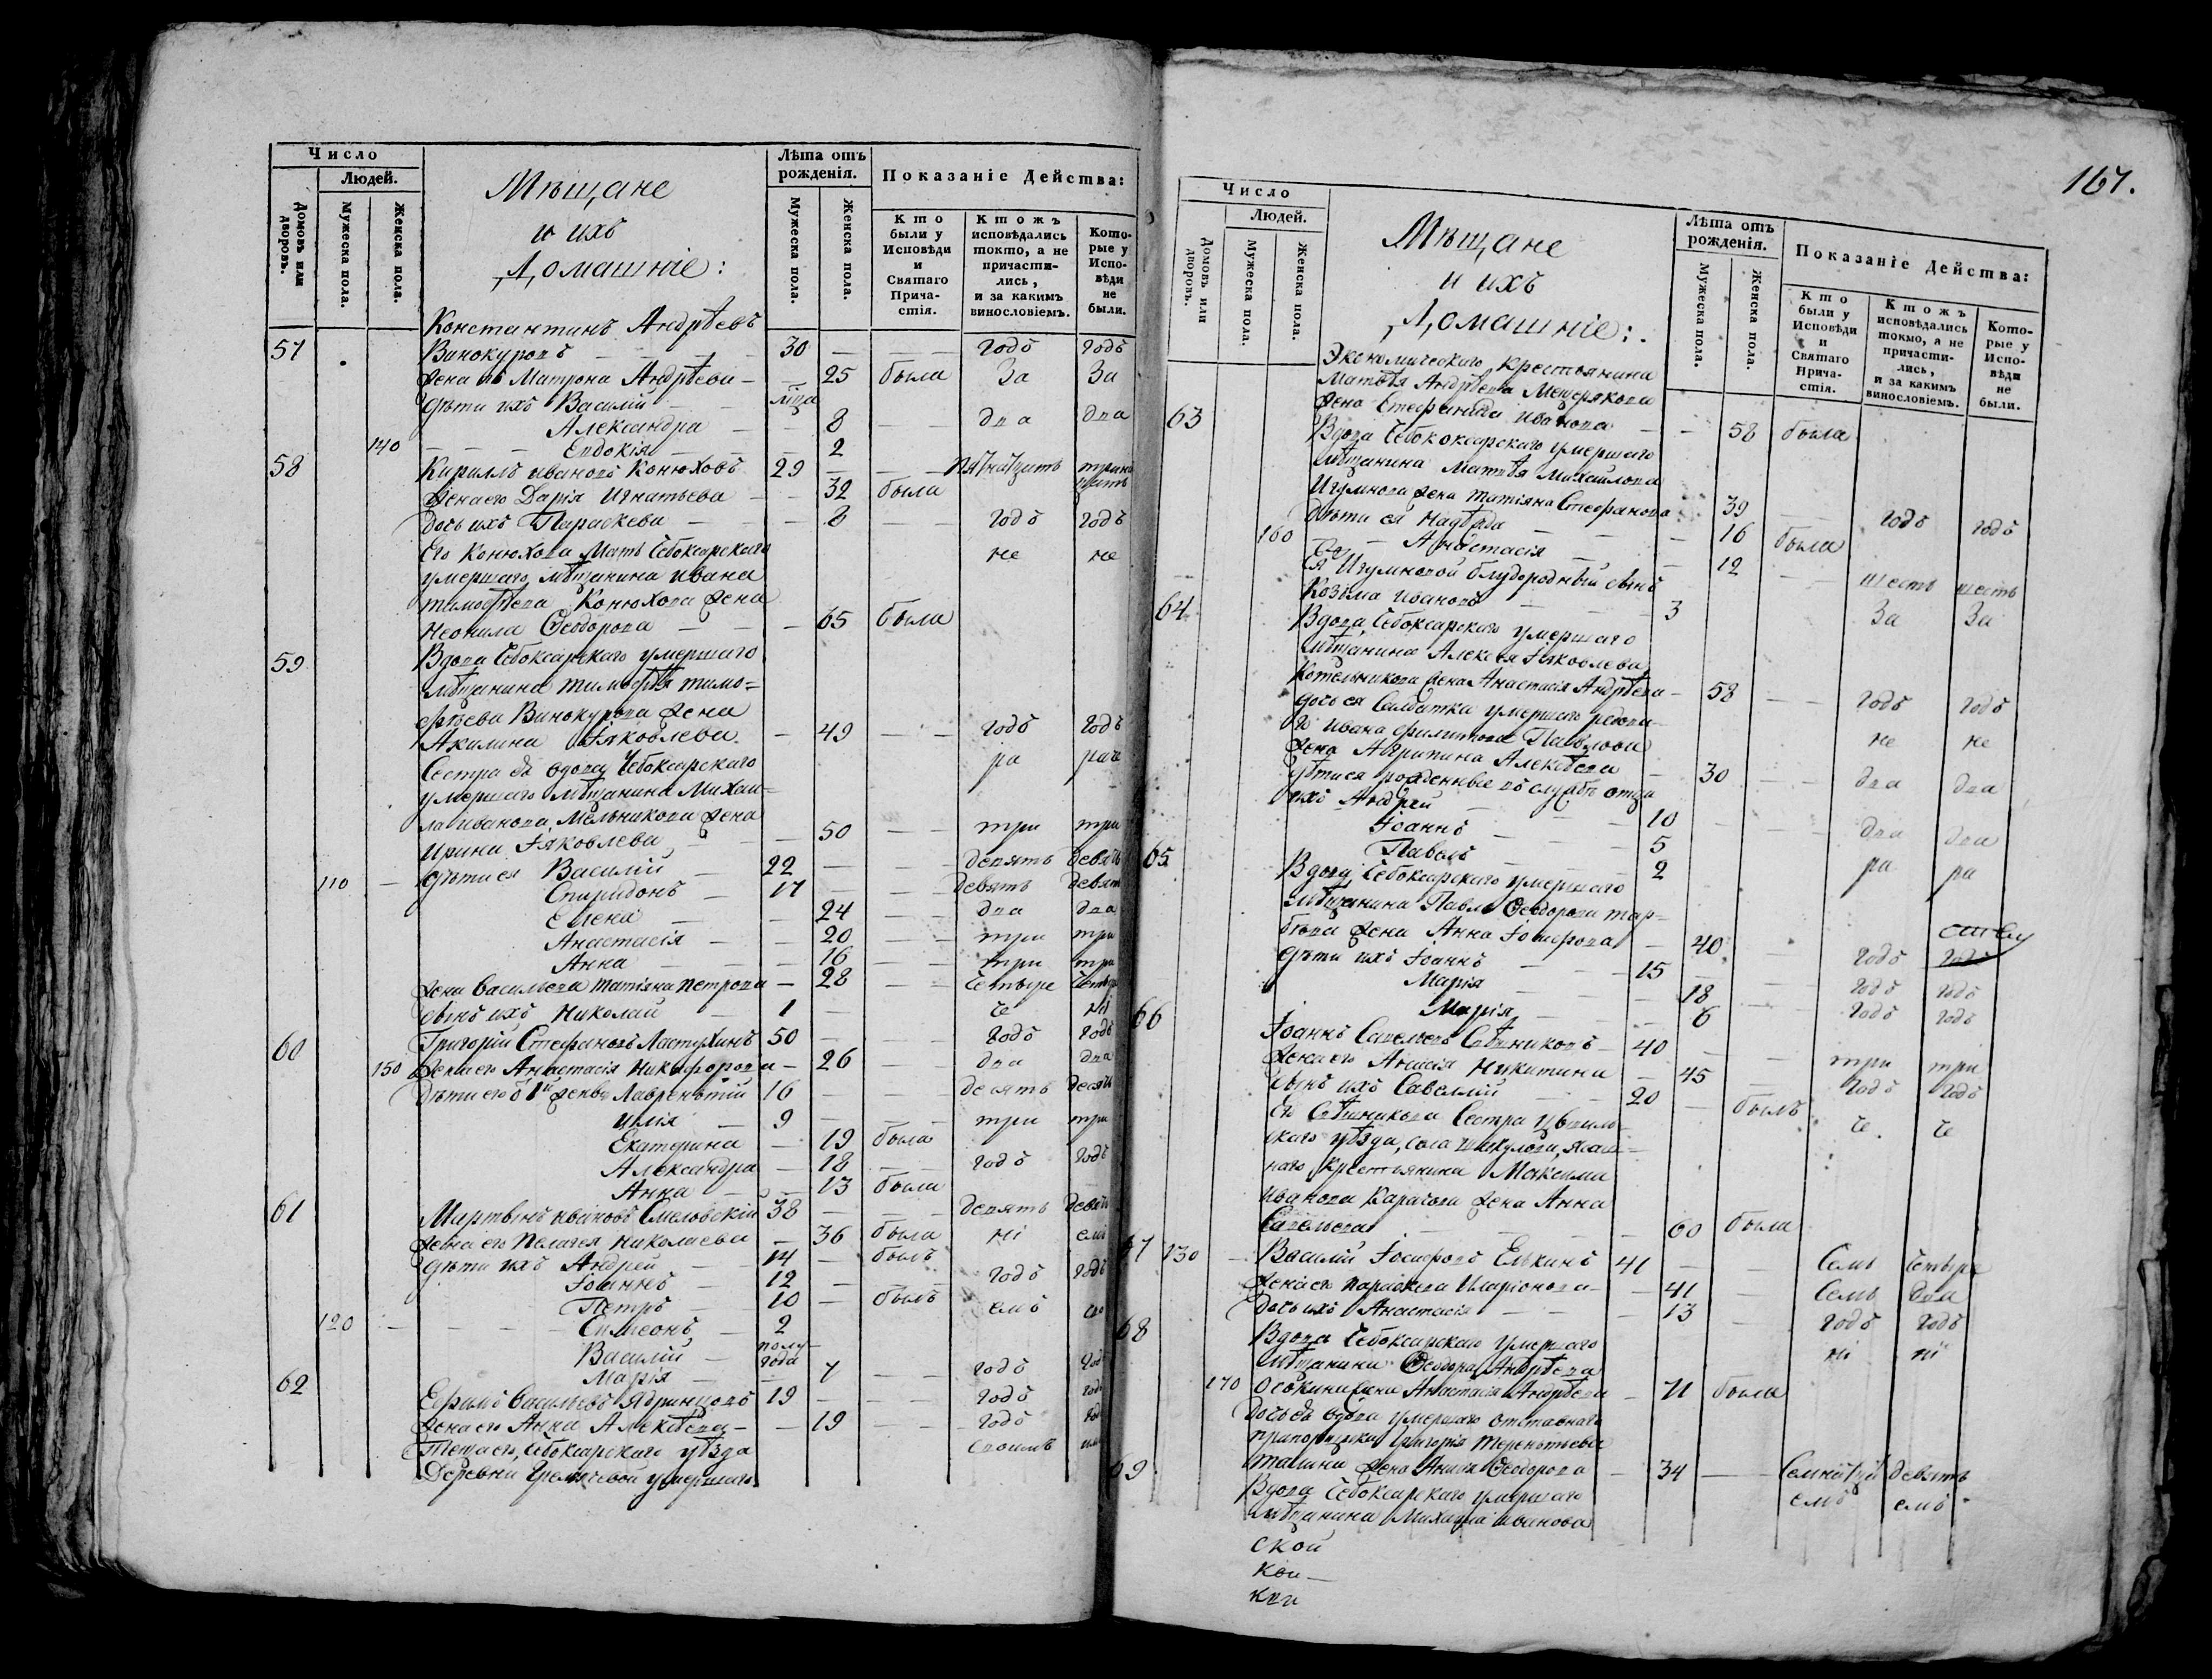 Число
Людей.
Домовъ или дворовъ.
Мужеска пола.
Женска пола.
Мѣщане
и ихъ
Домашніе:
Лѣта отъ рожденія.
Мужеска пола.
Женска пола.
Показаніе Действа:
Кто были у Исповѣди и Святаго Причастія.
Ктожъ исповѣдались токмо, а не причастились, и за какимъ винословіемъ.
Которые у Исповѣди не были.
Константинъ Андрѣевъ
57 Винокуровъ 30 — — — годъ годъ
Жена его Матрона Андрѣева — — 25 была За За
Дѣти ихъ Василій — —
Александра — — 8 — — два два
140 — — Евдокія — — — 2
58 Кириллъ Ивановъ Конюховъ 29 — — — пятнатцать
Жена его Дарія Игнатьева — — 32 была
Дочь ихъ Параскева — — — 8 — — годъ годъ
Его Конюхова Мать Чебоксарскаго не не
умершаго мѣщанина Ивана
Тимофѣева Конюхова жена
Неонила Ѳеодорова — — — 65 была
59 Вдова Чебоксарскаго умершаго
мѣщанина Тимофѣя Тимо=
фѣева Винокурова жена
Акилина Іяковлева — 49 — — годъ годъ
Сестра ея вдова Чебоксарскаго ра
умершаго мѣщанина Михаи=
ла Иванова Мельникова жена
Ирина Іяковлева — — 50 — — три три
110 — дѣти ея Василій — 22 — — девять девять
Спиридонъ — 17 — — девять девять
Елена — — 24 — — два два
Анастасія — — 20 — — три три
Анна — — — 16 — — три три
Жена Васильева Татіяна Петрова — 28 — — четыре
сынъ ихъ Николай — 1 — че
60 Григорій Стефановъ Ластухинъ 50 — — годъ годъ
150 Жена его Анастасія Никифорова — 26 — — два два
Дѣти его 1й жены Лаврентій 16 — десять десять
Илія — 9 — — три три
Екатерина — 19 была
Александра — 18 — — годъ годъ
Анна — — 13 была
61 Мартынъ Ивановъ Смеловскій 38 — — — девять девять
Жена его Пелагея Николаева — 36 была ні
дѣти ихъ Андрей — — 14 — былъ
Іоаннъ — 12 — — годъ годъ
Петръ — 10 — былъ емъ
120 — — — — Симеонъ — 2
Василій — полу года
Марія — — 7 — — годъ
62 Ефимъ Васильевъ Ядринцовъ 19 — — — годъ
Жена его Анна Алексѣева — — 19 — — годъ
Теща его, Чебоксарскаго уѣзда своимъ
Деревни Гремячевой умершаго
167.
Число
Людей.
Домовъ или дворовъ.
Мужеска пола.
Женска пола.
Мѣщане
и ихъ
Домашніе:
Лѣта отъ рожденія.
Мужеска пола.
Женска пола.
Показаніе Действа:
Кто были у Исповѣди и Святаго Причастія.
Ктожъ исповѣдались токмо, а не причастились, и за какимъ винословіемъ.
Которые у Исповѣди не были.
Экономическаго крестьянина
Матвѣя Андрѣева Мещерякова
63 жена Стефанида Иванова — — 58 была
Вдова Чебоксарскаго умершаго
мѣщанина Матвѣя Михайлова
Игумнова жена Татіяна Стефанова 39 — — годъ годъ
160 Дѣти ея Надежда — — — 16 была
Анастасія — — 12 — — шесть шесть
Ея Игумновой блудородный сынъ
Козьма Ивановъ — — 3 За За
64 Вдова, Чебоксарскаго умершаго
мѣщанина Алексѣя Іяковлева
Котельникова жена Анастасія Андрѣева — 58 — — годъ годъ
дочь ея Солдатка умершаго рядова= не не
го Ивана Филипова Павлова
жена Агрипина Алексѣева — 30 — — два два
Дѣти ея рожденные въ службѣ отца
ихъ Андрей — — 10 — — два два
Іоаннъ — — 5 ра ра
Павелъ — — 2
65 Вдова, Чебоксарскаго умершаго
мѣщанина Павла Ѳеодорова
жена Анна Іосифова — 40 — годъ
дѣти ихъ Іоаннъ — — 15 — — годъ годъ
Марія — — — 18 — годъ годъ
Марія — — — 6
66 Іоаннъ Савельевъ Свѣшниковъ — 40 — — три три
Жена его Анисія Никитина — 45 — годъ годъ
сынъ ихъ Савелій — — 20 — былъ
Его Свѣшникова Сестра Цывиль= че че
скаго уѣзда, села Шихулова,
наго крестьянина Максима
Иванова Карачова жена Анна
Савельева — — — 60 была
67 130 — Василій Іосифовъ Елькинъ 41 — — Семь Четыре
Жена его Параскева Иларіонова — — 41 — Семь два
Дочь ихъ Анастасія — — — 13 — годъ годъ
68 Вдова Чебоксарскаго умершаго ні ні
мѣщанина Ѳеодора Андрѣева
170 Осокина жена Анастасія Андрѣева — 71 была
Дочь ея вдова умершаго отставнаго
прапорщика Григорія Терентьева
жена Анисія Ѳеодорова — 34 — — девять
69 Вдова Чебоксарскаго умершаго емъ емъ
мѣщанина Михаила Иванова